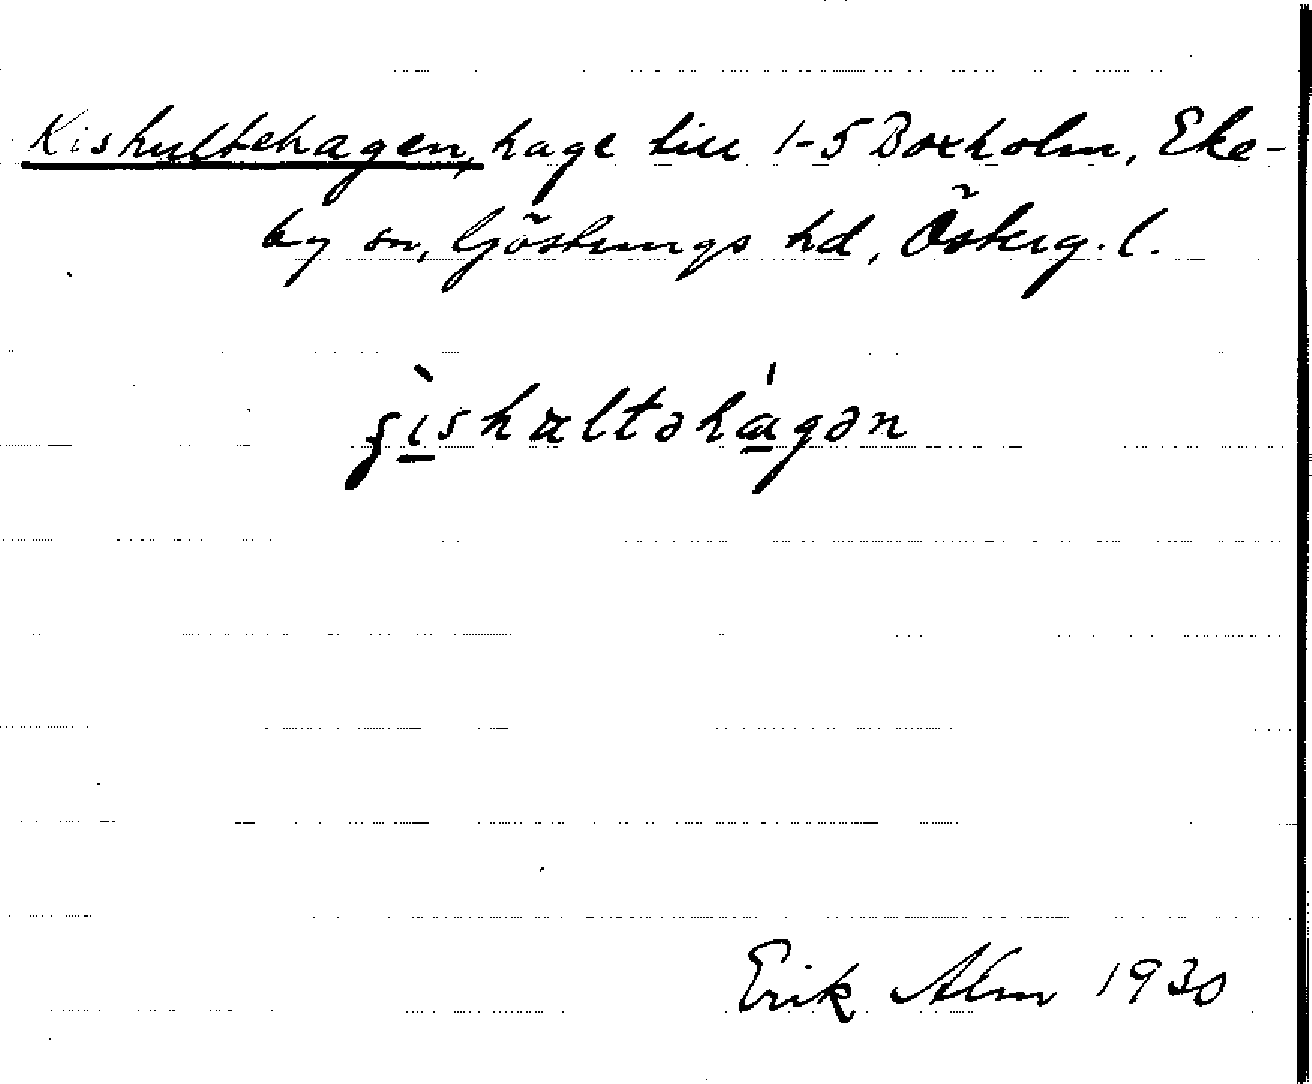 Kishultehagen, hage till 1-5 Boxholm, Eke-
by sn, Göstrings hd, Österg. l.
ʂìshultəhágən
Erik Alm 1930